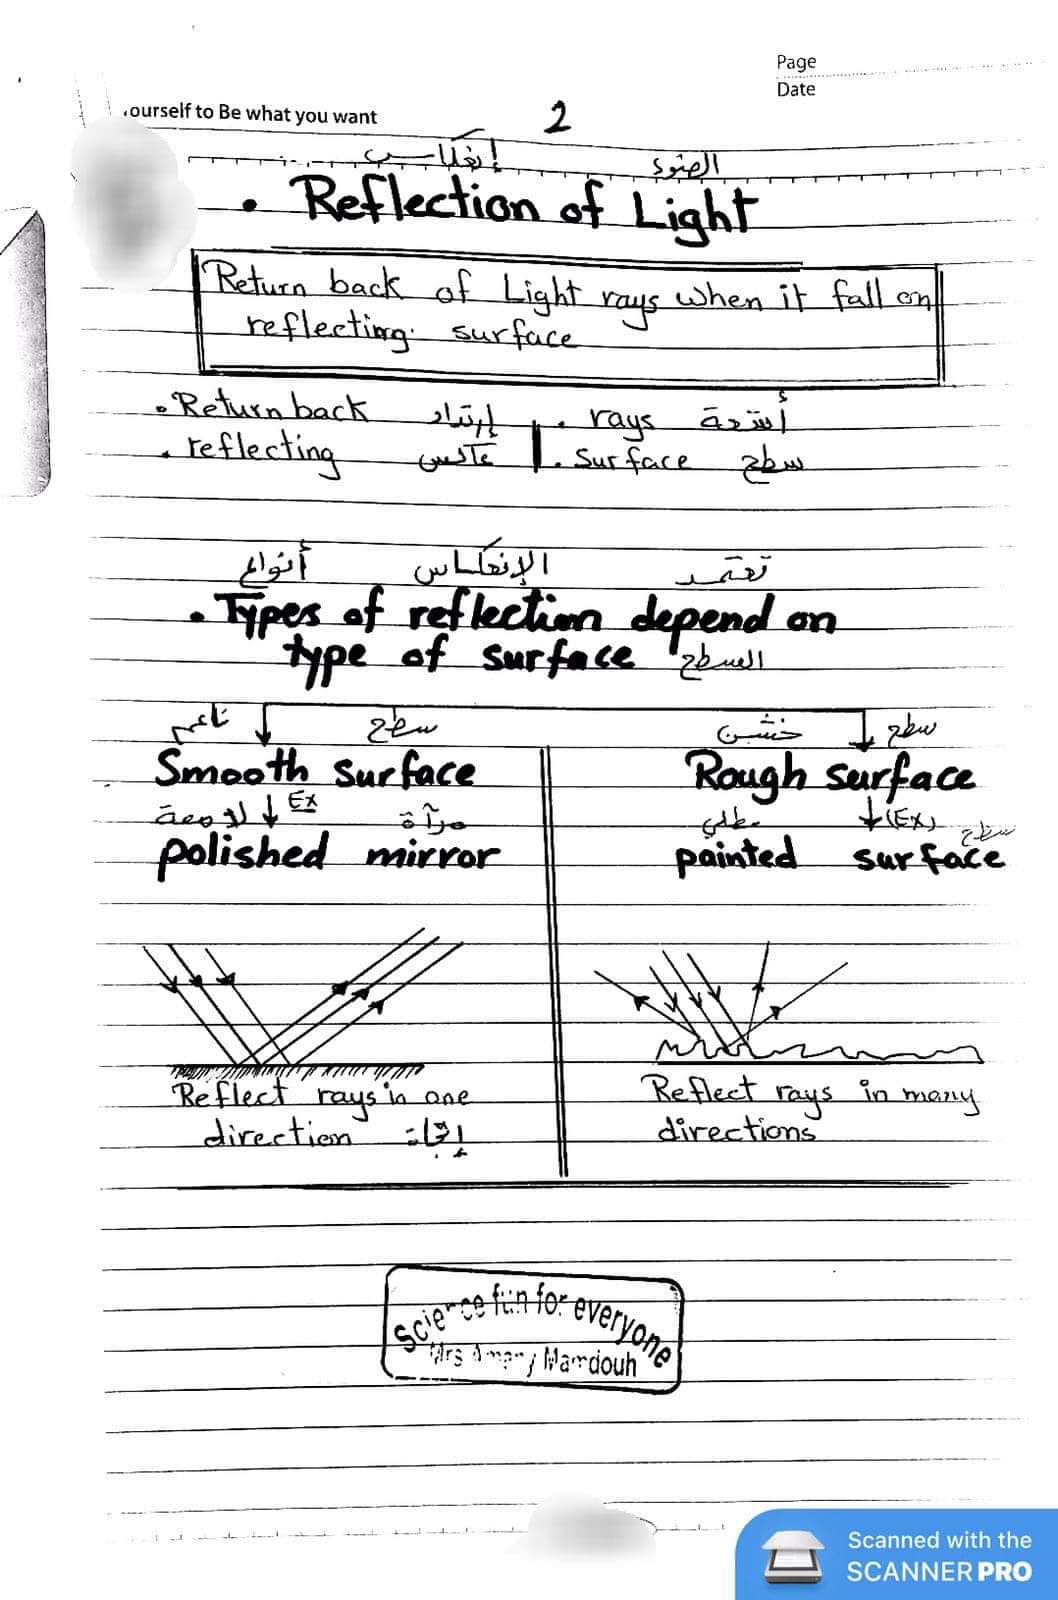 Page
Date
ourself to Be what you want
2
إنعكاس الضوء
• Reflection of Light
Return back of Light rays when it fall on
reflecting surface
• Return back إرتداد • rays أشعة
• reflecting عاكس • surface سطح
أنواع الإنعكاس تعتمد
• Types of reflection depend on
type of surface السطح
ناعم سطح خشن سطح
Smooth surface Rough surface
لامعة Ex مرآة مطلي (Ex) سطح
polished mirror painted surface
Reflect rays in one
direction إتجاه
Reflect rays in many
directions
Science fun for everyone
Mrs Amany Mamdouh
Scanned with the
SCANNER PRO